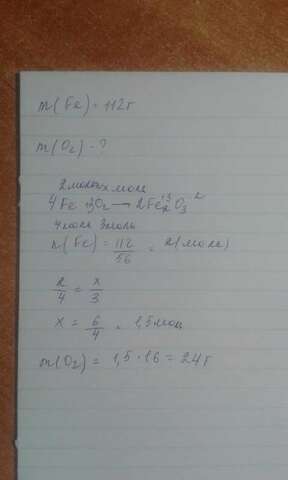 m(Fe) = 112г
m(O₂) - ?
2моль x моль
4Fe 3O₂ → 2Fe₂⁺³O₃²
4моль 3моль
n(Fe) = 112/56 = 2(моль)
2/4 = x/3
x = 6/4 = 1,5моль
m(O₂) = 1,5 · 16 = 24г